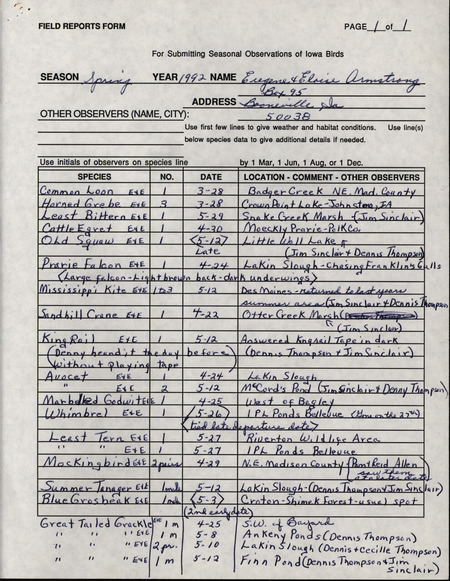 FIELD REPORTS FORM PAGE 1 of 1
For Submitting Seasonal Observations of Iowa Birds
SEASON Spring YEAR 1992 NAME Eugene & Eloise Armstrong
Box 95
ADDRESS Booneville, Ia
OTHER OBSERVERS (NAME, CITY): 50038
Use first few lines to give weather and habitat conditions. Use line(s)
below species data to give additional details if needed.
Use initials of observers on species line by 1 Mar, 1 Jun, 1 Aug, or 1 Dec.
SPECIES NO. DATE LOCATION - COMMENT - OTHER OBSERVERS
Common Loon E&E 1 3-28 Badger Creek N.E. Mad. County
Horned Grebe E&E 3 3-28 Crown Point Lake - Johnston, IA
Least Bittern E&E 1 5-29 Snake Creek Marsh (Jim Sinclair)
Cattle Egret E&E 1 4-30 Moeckly Prarie - Polk Co.
Old Squaw E&E 1 <5-12> Little Wall Lake
Late (Jim Sinclair & Dennis Thompson)
Prarie Falcon E&E 1 4-24 Lakin Slough - Chasing Franklin's Gulls
<Large falcon - Light brown back - dark underwings>
Mississippi Kite E&E 1 5-12 Des Moines - returned to last years
summer area (Jim Sinclair & Dennis Thompson)
Sandhill Crane E&E 1 4-22 Otter Creek Marsh
(Jim Sinclair)
King Rail E&E 1 5-12 Answered Kingrail Tape in dark
(Denny heard it the day before) (Dennis Thompson & Jim Sinclair)
(without playing tape
Avocet E&E 1 4-24 Lakin Slough
" E&E 2 5-12 McCord's Pond (Jim Sinclair & Denny Thompson)
Marbled Godwit E&E 1 4-25 West of Bagley
Whimbrel E&E 1 <5-26> IPL Ponds Bellevue (Gone on the 27th)
<tied late departure date>
Least Tern E&E 1 5-27 Riverton Wildlife Area
" " E&E 1 5-27 IPL Ponds Bellevue
Mockingbird E&E 2 pairs 4-29 N.E. Madison County (Pam & Reid Allen)
saw them
Summer Tanager E&E 1 male 5-12 Lakin Slough - (Dennis Thompson & Jim Sinclair)
Blue Grosbeak E&E 1 male <5-3> Croton - Shimek Forest - usual spot
(2nd early date)
Great Tailed Grackle E&E 1 m 4-25 S.W. of Bayard
" " " E&E 1 m 5-8 Ankeny Ponds (Dennis Thompson)
" " " E&E 2 pr. 5-10 Lakin Slough (Dennis & Cecille Thompson)
" " " E&E 1 m 5-12 Finn Pond (Dennis Thompson & Jim
Sinclair)